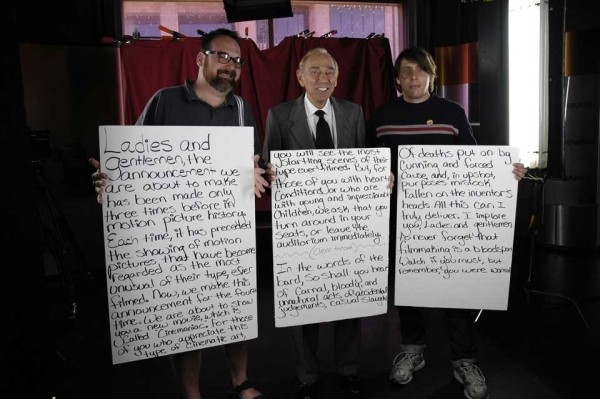 Ladies and
gentlemen, the
announcement we
are about to make
has been made only
three times, before in
motion picture history.
Each time, it has preceded
the showing of motion
pictures that have become
regarded as the most
unusual of their type, ever
filmed. Now, we make this
announcement for the fourth
time. We are about to show
you a new movie, which is
called Cinemaniac. For those
of you who appreciate this
type of kinematic art,
you will see the most
startling scenes of their
type ever filmed. But, for
those of you with heart
conditions, or who are
with young and impressionable
children, we ask that you
turn around in your
seats, or leave the
auditorium immediately.
In the words of the
bard, so shall you hear
of carnal, bloody, and
unnatural acts, of accidental
judgements, casual slaughters
Of deaths put on by
cunning and forced
cause, and, in upshot,
purposes mistook
Fallen on the inventor's
heads. All this can I
truly deliver. I implore
you, Ladies and gentlemen,
to never forget that
filmmaking is a bloodsport.
Watch if you must, but
remember, you were warned.